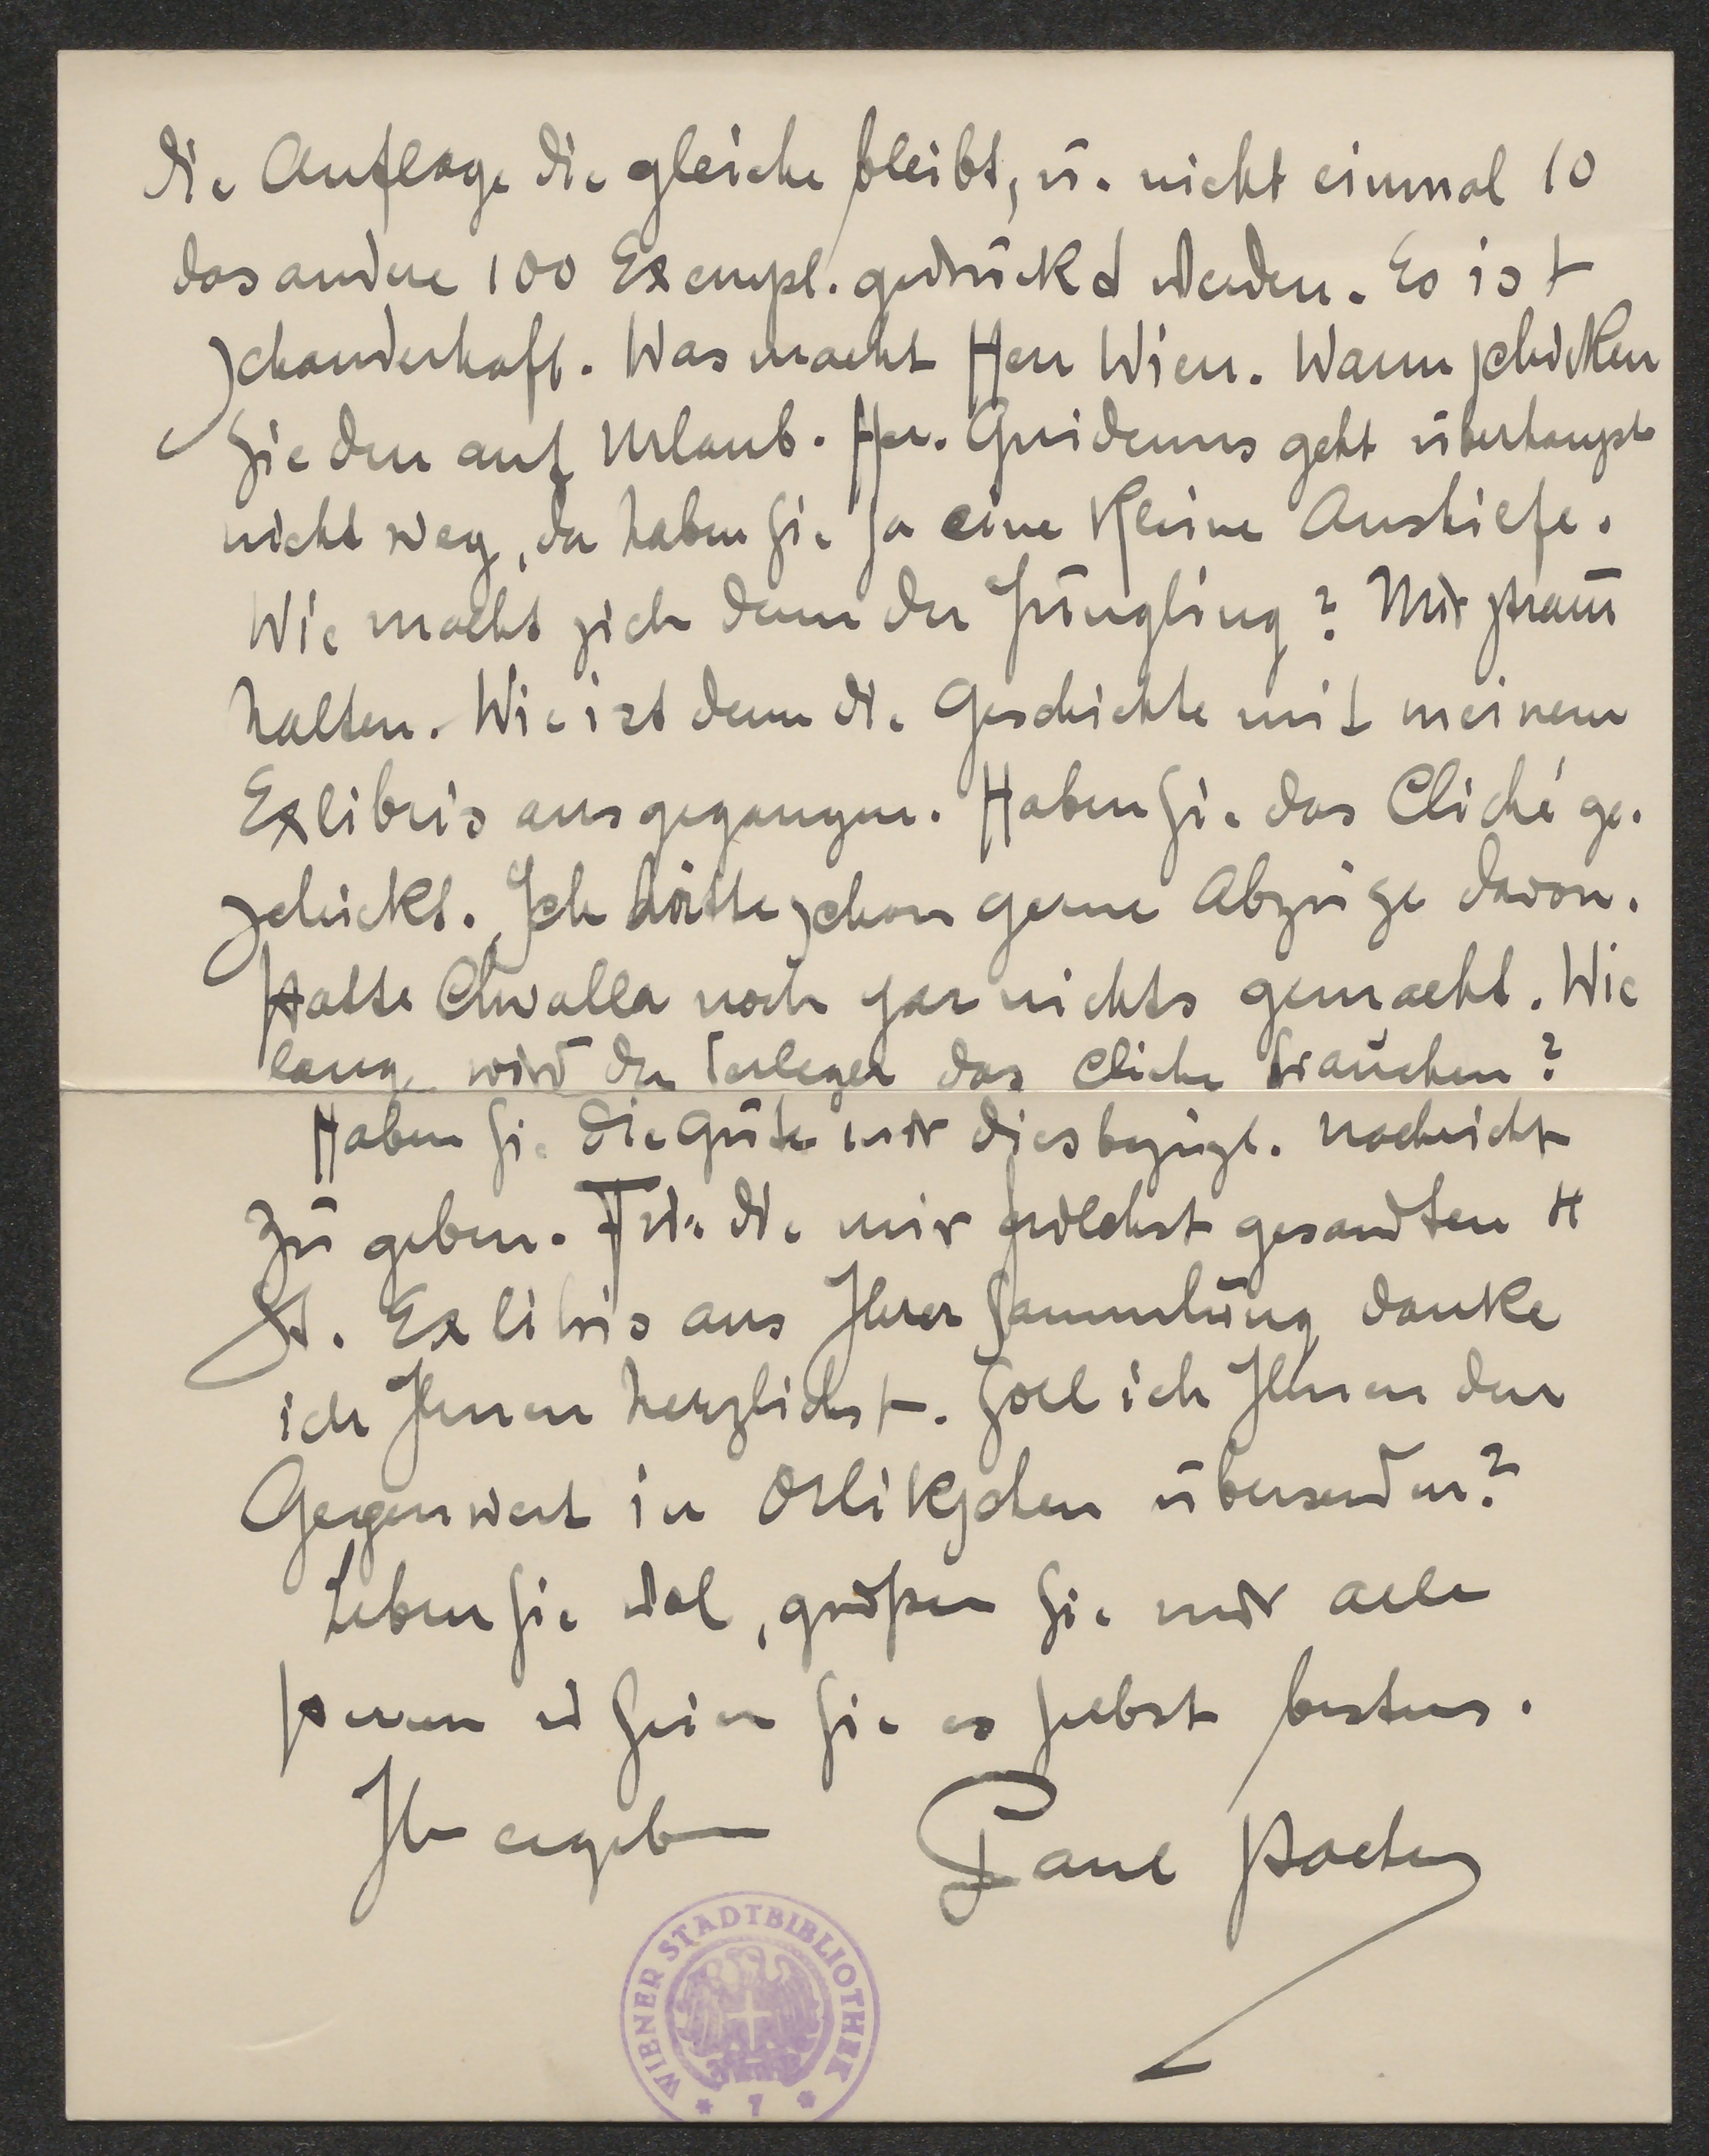 die Auflage die gleiche bleibt, u. nicht einmal 10
das andere 100 Exempl. gedruckt werden. Es ist
schauderhaft. Was macht Herr Wien. Wann schicken
Sie den auf Urlaub. Her. geht überhaupt
nicht weg, da haben Sie ja eine kleine Aushilfe.
Wie macht sich denn der Jüngling? Nur stram
halten. Wie ist denn die Geschichte mit meinem
Exlibris ausgegangen. Haben Sie das Cliché ge-
schickt. Ich hätte schon gerne Abzüge davon.
Hatte Chwalla noch gar nichts gemacht. Wie
lang wird der Verleger das Cliche brauchen?
Haben Sie die Güte mir diesbezügl. Nachricht
zu geben. Für die mir gesandten H
St. Exlibris aus Ihrer Sammlung danke
ich Ihnen herzlichst. Soll ich Ihnen den
Gegenwert in Orlikschen übersenden?
Leben Sie wol, grüßen Sie mir alle
u Seien Sie es selbst bestens.
Ihr ergeb
Paul
WIENER STADTBIBLIOTHEK
* 7 *